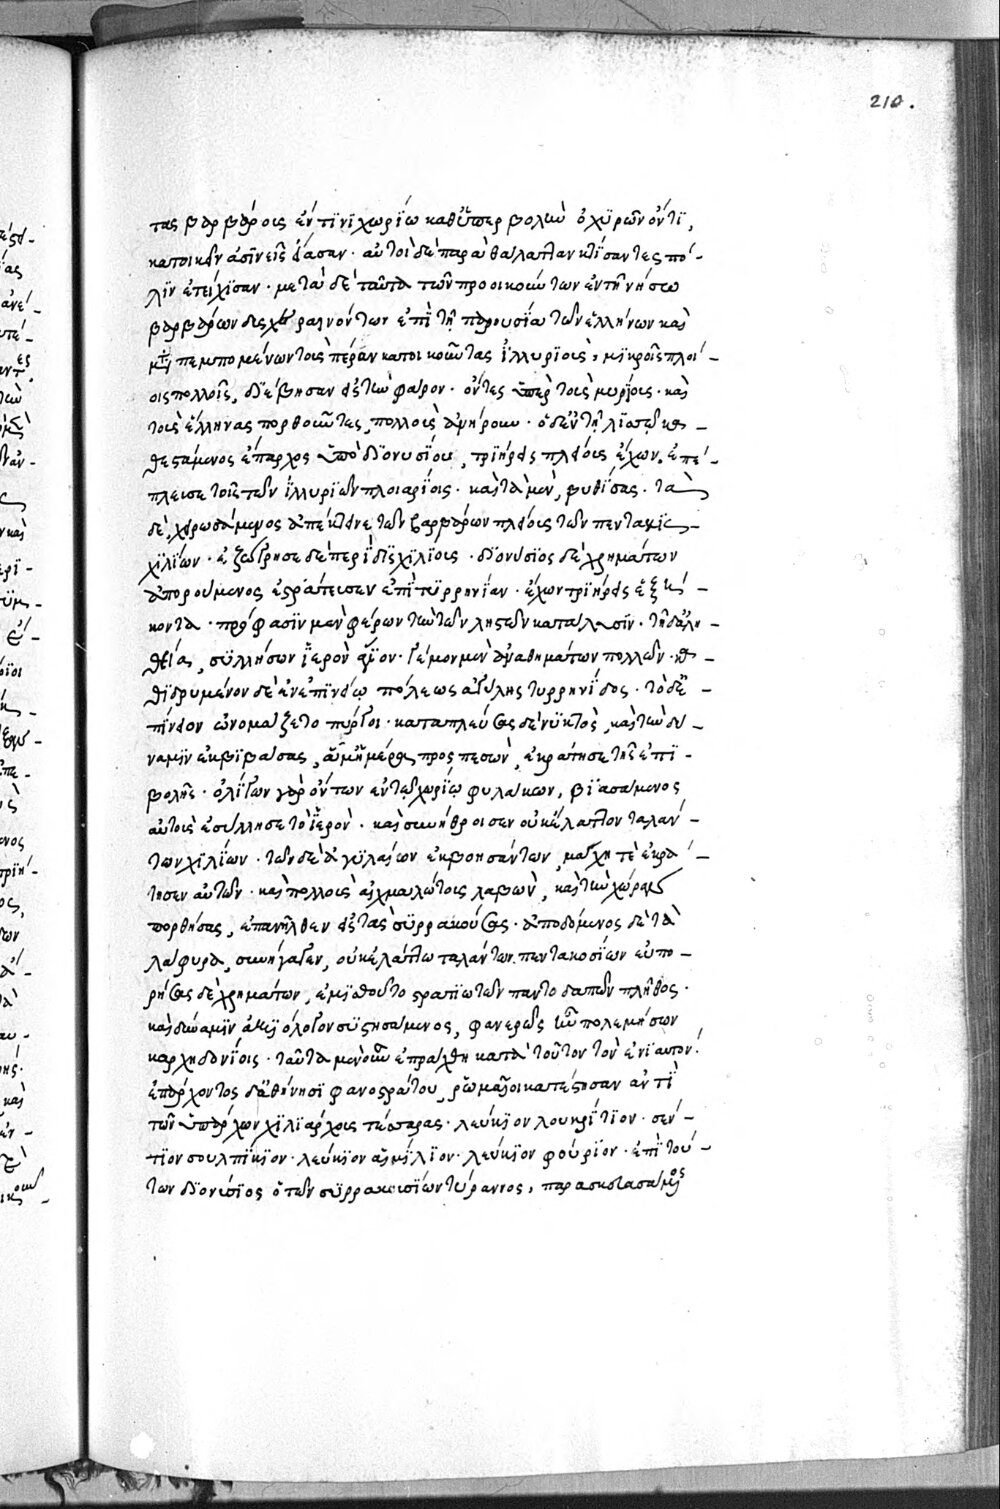 210.
τας βαρβάροις ἔν τινι χωρίω καθ ὑπερβολὴν ὀχυρῶ ὄντι,
κατοικεῖν ἀσινεῖς εἴασαν · αὐτοὶ δὲ παρὰ θάλατταν κτίσαντες πό-
λιν ἐτείχισαν · μετὰ δὲ ταῦτα τῶν προοικούντων ἐν τῆ νήσω
βαρβάρων δυσχεραινόντων ἐπὶ τῆ παρουσία τῶν ἑλλήνων καὶ
μεταπεμπομένων τοὺς πέραν κατοικοῦντας ἰλλυριοὺς, μικροῖς πλοί-
οις πολλοῖς, διέβησαν εἰς τὴν φάρον · ὄντες ὑπὲρ τοὺς μυρίους · καὶ
τοὺς ἕλληνας πορθοῦντες, πολλοὺς ἀνήρουν · ὁ δ ἐν τῆ λίσσω κα-
θεσάμενος ἔπαρχος ὑπὸ διονυσίου, τριήρεις πλείους ἔχων, ἐπέ-
πλευσε τοῖς τῶν ἰλλυριῶν πλοιαρίοις · καὶ τὰ μὲν, βυθίσας · τὰ
δὲ χειρωσάμενος ἀπέκτεινε τῶν βαρβάρων πλείους τῶν πεντακισ-
χιλίων · ἐζώγρησε δὲ περὶ δισχιλίους · διονύσιος δὲ χρημάτων
ἀπορούμενος ἐστράτευσεν ἐπὶ τυρρηνίαν · ἔχων τριήρεις ἑξή-
κοντα · πρόφασιν μὲν φέρων τὴν τῶν ληστῶν κατάλυσιν · τῆ δ ἀλη-
θεία, συλήσων ἱερὸν ἅγιον · γέμον μὲν ἀναθημάτων πολλῶν · κα-
θιδρυμένον δὲ ἐν ἐπινείω πόλεως ἀγύλης τυρρηνίδος · τὸ δ ἐ-
πίνειον ὠνομάζετο πύργοι · καταπλεύσας δὲ νυκτὸς, καὶ τὴν δύ-
ναμιν ἐκβιβάσας, ἅμ ἡμέρα προσπεσὼν, ἐκράτησε τῆς ἐπι-
βολῆς · ὀλίγων γὰρ ὄντων ἐν τῶ χωρίω φυλάκων, βιασάμενος
αὐτοὺς ἐσύλησε τὸ ἱερὸν · καὶ συνήθροισεν οὐκ ἔλαττον ταλάν-
των χιλίων · τῶν δὲ ἀγυλαίων ἐκβοησάντων, μάχη τὲ ἐκρά-
τησεν αὐτῶν · καὶ πολλοὺς αἰχμαλώτους λαβὼν, καὶ τὴν χώραν
πορθήσας, ἐπανῆλθεν εἰς τὰς συρρακούσας · ἀποδόμενος δὲ τὰ
λάφυρα, συνήγαγεν, οὐκ ἐλάττω ταλάντων πεντακοσίων εὐπο-
ρήσας δὲ χρημάτων, ἐμισθοῦτο στρατιωτῶν παντοδαπῶν πλῆθος ·
καὶ δύναμιν ἀξιόλογον συστησάμενος, φανερῶς ἦν πολεμήσων
καρχηδονίοις · ταῦτα μὲν οὖν ἐπράχθη κατὰ τοῦτον τὸν ἐνιαυτόν ·
ἐπ ἄρχοντος δ ἀθήνησι φανοστράτου, ῥωμαῖοι κατέστησαν ἀντὶ
τῶν ὑπάρχων χιλιάρχους τέσσαρας · λεύκιον λουκρίτιον · σέν-
τιον σουλπίκιον · λεύκιον αἰμίλιον · λεύκιον φούριον · ἐπὶ τού-
των διονύσιος ὁ τῶν συρρακουσίων τύραννος, παρασκευασάμενος